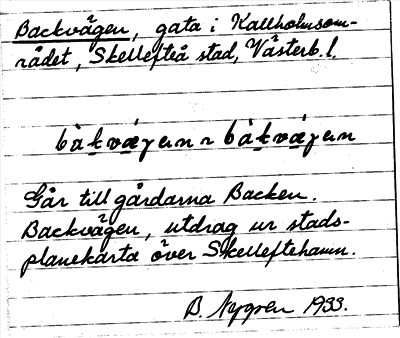 Backvägen, gata i Kallholmsom-
rådet, Skellefteå stad, Västerb.l.
bàkvæɡen ~ bàkvæɡen
Går till gårdarna Backen.
Backvägen, utdrag ur stads-
planekarta över Skelleftehamn.
B. Nygren 1933.